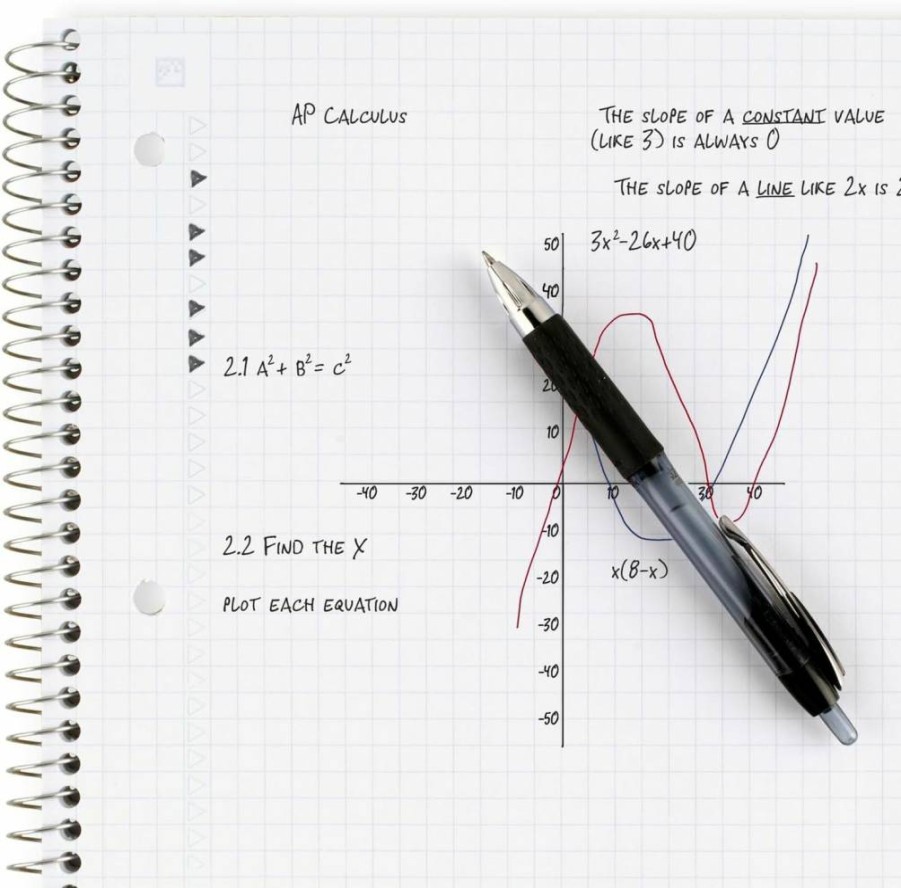 AP CALCULUS
THE SLOPE OF A CONSTANT VALUE
(LIKE 3) IS ALWAYS 0
THE SLOPE OF A LINE LIKE 2x IS 2
50
3x²-26x+40
40
2.1 A² + B² = c²
20
10
-40 -30 -20 -10 0 10 30 40
-10
2.2 FIND THE X
x(8-x)
-20
PLOT EACH EQUATION
-30
-40
-50